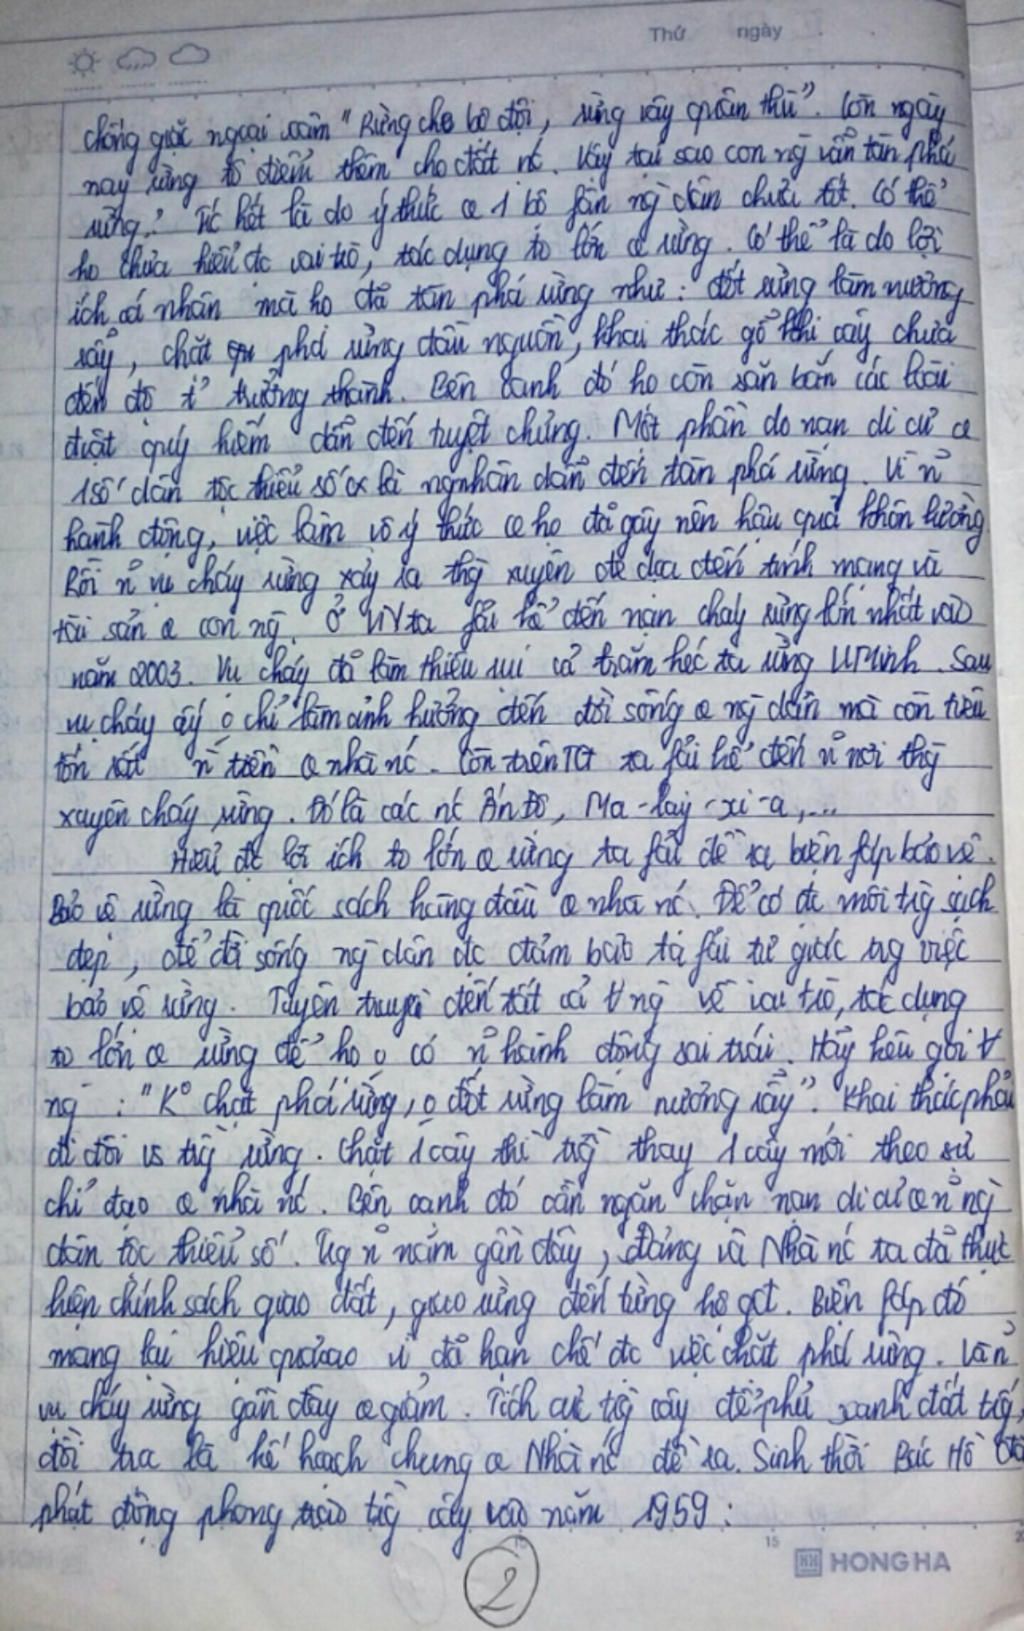 Thứ ngày
chống giặc ngoại xâm "Rừng che bộ đội, rừng vây quân thù". Còn ngày
nay rừng tô điểm thêm cho đất nc. Vậy tại sao con ng vẫn tàn phá
rừng? Tc hết là do ý thức 1 bộ fận ng dân chưa tốt. Có thể
họ chưa hiểu đc vai trò, tác dụng to lớn rừng. Có thể là do lợi
ích cá nhân mà họ đã tàn phá rừng như: đốt rừng làm nương
rẫy, chặt phá rừng đầu nguồn, khai thác gỗ khi cây chưa
đến độ trưởng thành. Bên cạnh đó họ còn săn bắn các loài
đvật quý hiếm dẫn đến tuyệt chủng. Một phần do nạn di cư
1 số dân tộc thiểu số là ng nhân dẫn đến tàn phá rừng. Vì n~
hành động, việc làm vô ý thức họ đã gây nên hậu quả khôn lường
Rồi n~ vụ cháy rừng xảy ra thg xuyên đe dọa đến tính mạng và
tài sản con ng. Ở VN ta fải kể đến nạn cháy rừng lớn nhất vào
năm 2003. Vụ cháy đã làm thiêu rụi cả trăm héc ta rừng U Minh. Sau
vụ cháy ấy o chỉ làm ảnh hưởng đến đời sống ng dân mà còn tiêu
tốn rất n` tiền nhà nc. Còn trên TG ta fải kể đến n~ nơi thg
xuyên cháy rừng. Đó là các nc Ấn Độ, Ma-lay-xi-a,...
Hiểu đc lợi ích to lớn rừng ta fải đề ra biện fáp bảo vệ.
Bảo vệ rừng là quốc sách hàng đầu nhà nc. Để có đc môi trg sạch
đẹp, để đời sống ng dân đc đảm bảo ta fải tự giác trg việc
bảo vệ rừng. Tuyên truyền đến tất cả ∀ ng về vai trò, tác dụng
to lớn rừng để họ o có n~ hành động sai trái. Hãy kêu gọi ∀
ng: "K° chặt phá rừng, o đốt rừng làm nương rẫy". Khai thác phải
đi đôi vs trg rừng. Chặt 1 cây thì trg thay 1 cây mới theo sự
chỉ đạo nhà nc. Bên cạnh đó cần ngăn chặn nạn di cư n~ ng
dân tộc thiểu số. Trg n~ năm gần đây, Đảng và Nhà nc ta đã thực
hiện chính sách giao đất, giao rừng đến từng hộ gđ. Biện fáp đó
mang lại hiệu quả cao vì đã hạn chế đc việc chặt phá rừng.
vụ cháy rừng gần đây giảm. Tích cực trg cây để phủ xanh đất trg,
đồi trọc là kế hoạch chung Nhà nc đề ra. Sinh thời Bác Hồ đã
phát động phong trào trg cây vào năm 1959:
15
HONG HA
2